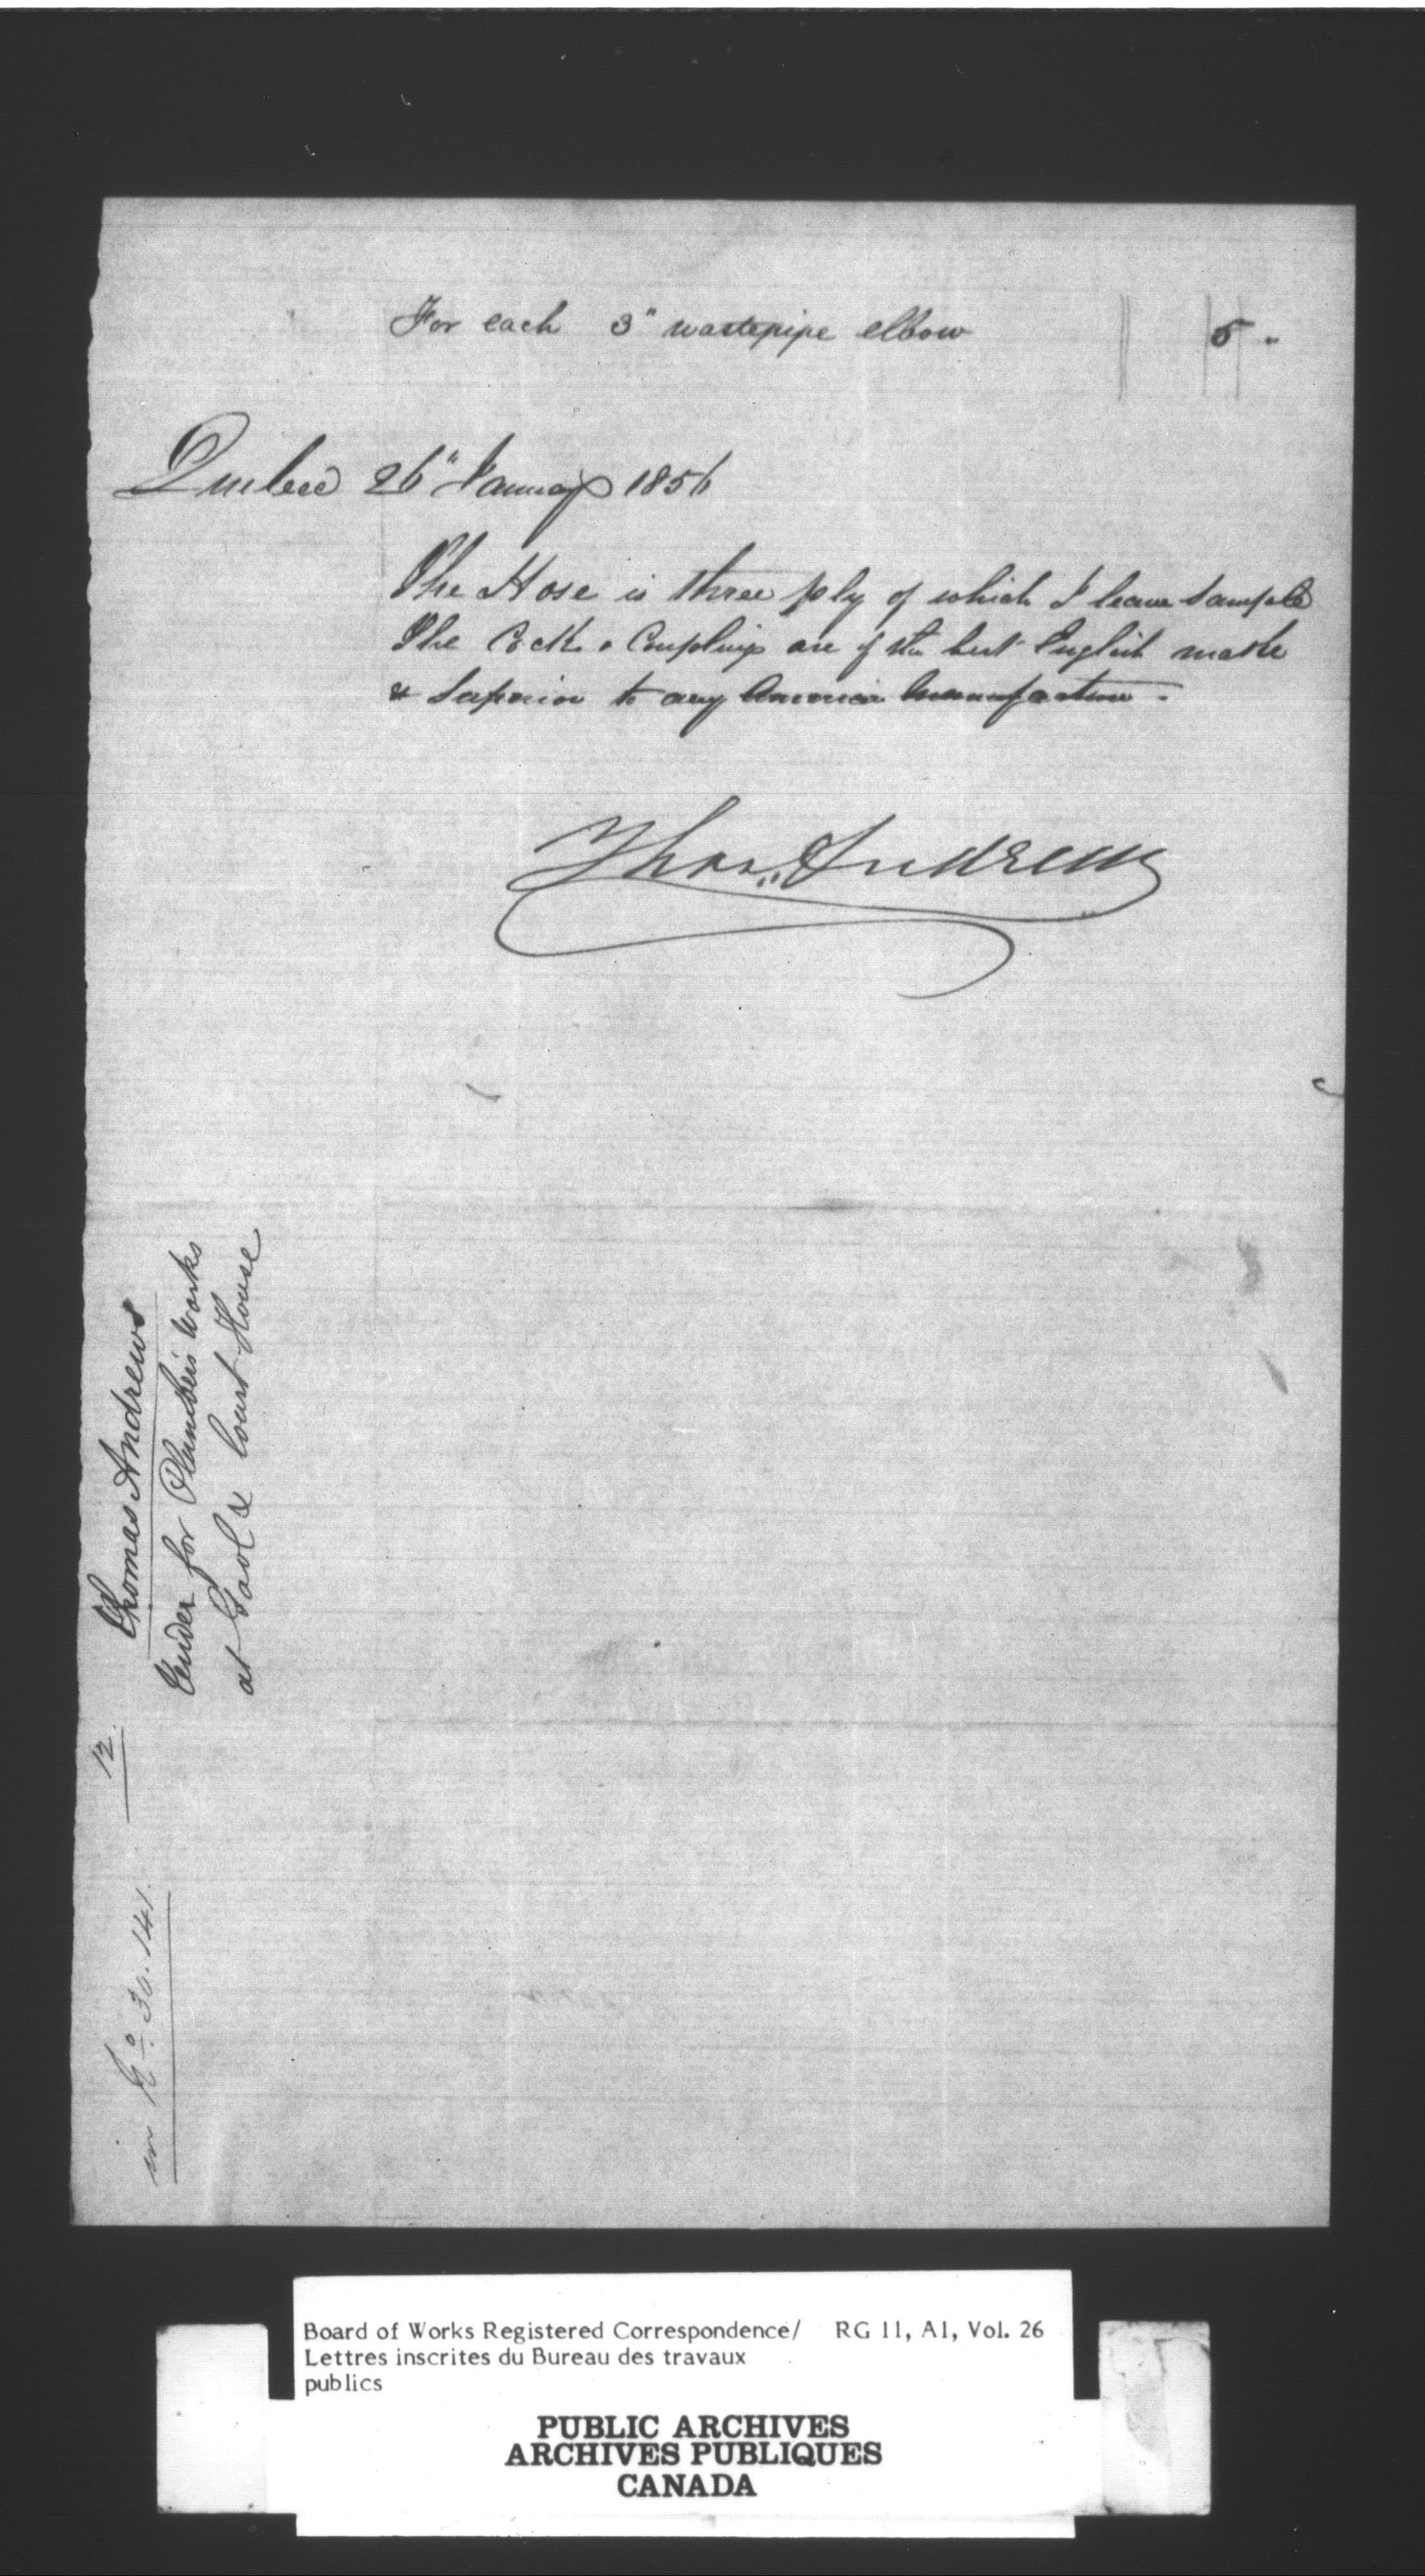 For each 3" wastepipe elbow 5 "
Quebec 26" January 1856
The Hose is three ply of which I leave Sample
The Cock & Couplings are of the best English make
& Superior to any America manufacture -
Thos. Andrews
Thomas Andrews
Tender for Plumbers Works
at Gaol & Court House
12.
in No. 30.141.
Board of Works Registered Correspondence/ RG 11, A1, Vol. 26
Lettres inscrites du Bureau des travaux
publics
PUBLIC ARCHIVES
ARCHIVES PUBLIQUES
CANADA